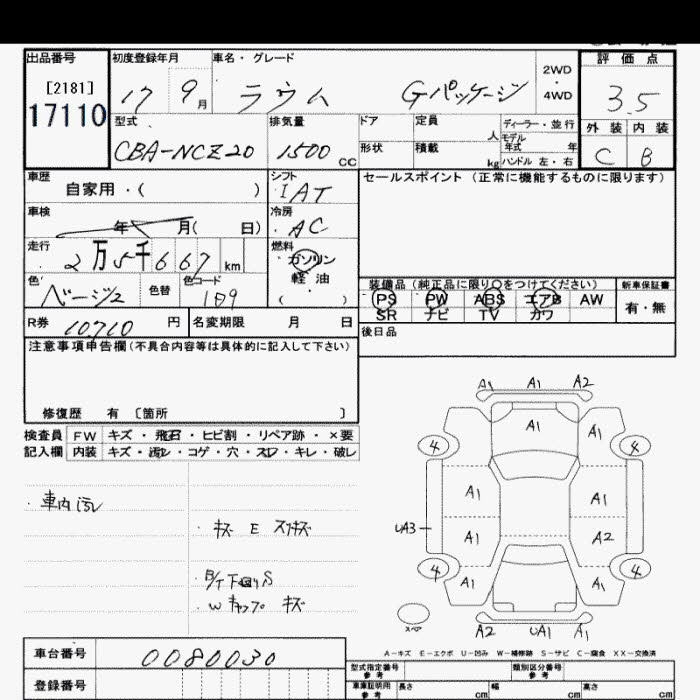 出品番号 初度登録年月 車名・グレード 評価点
[2181] 2WD
17110 17 9月 ラウム Gパッケージ ・4WD 3.5
型式 排気量 ドア 定員 ディーラー・並行 外装 内装
CBA-NCZ20 1500 CC 人 モデル年式 年 C B
形状 積載 kg ハンドル 左・右
車歴 シフト セールスポイント (正常に機能するものに限ります)
自家用・( ) IAT
車検 冷房
年 月( 日) AC
走行 燃料
2万5千667 km ガソリン
軽油
( )
色 色替 色コード 装備品 (純正品に限り○をつけてください) 新車保証書
ベージュ2 PS PW ABS エアB AW 有・無
SR ナビ TV カワ
R券 10710 円 名変期限 月 日 後日品
注意事項申告欄(不具合内容等は具体的に記入して下さい)
修復歴 有 [箇所 ]
検査員 FW キズ・飛石・ヒビ割・リペア跡・×要
記入欄 内装 キズ・汚レ・コゲ・穴・スレ・キレ・破レ
・車内汚レ
・キズ E スリキズ
B/T下回りS
W キャップ キズ
A1 A1 A2
A1 A1
4 4
A1 A1
UA3 A1 A2
4 4
A1 A1
スペア
A2 UA1 A1
A-キズ E-エクボ U-凹み W-補修跡 S-サビ C-腐食 XX-交換済
車台番号 0080030
登録番号
型式指定番号 参考 類別区分番号 参考
車庫証明用 参考 長さ cm 幅 cm 高さ cm